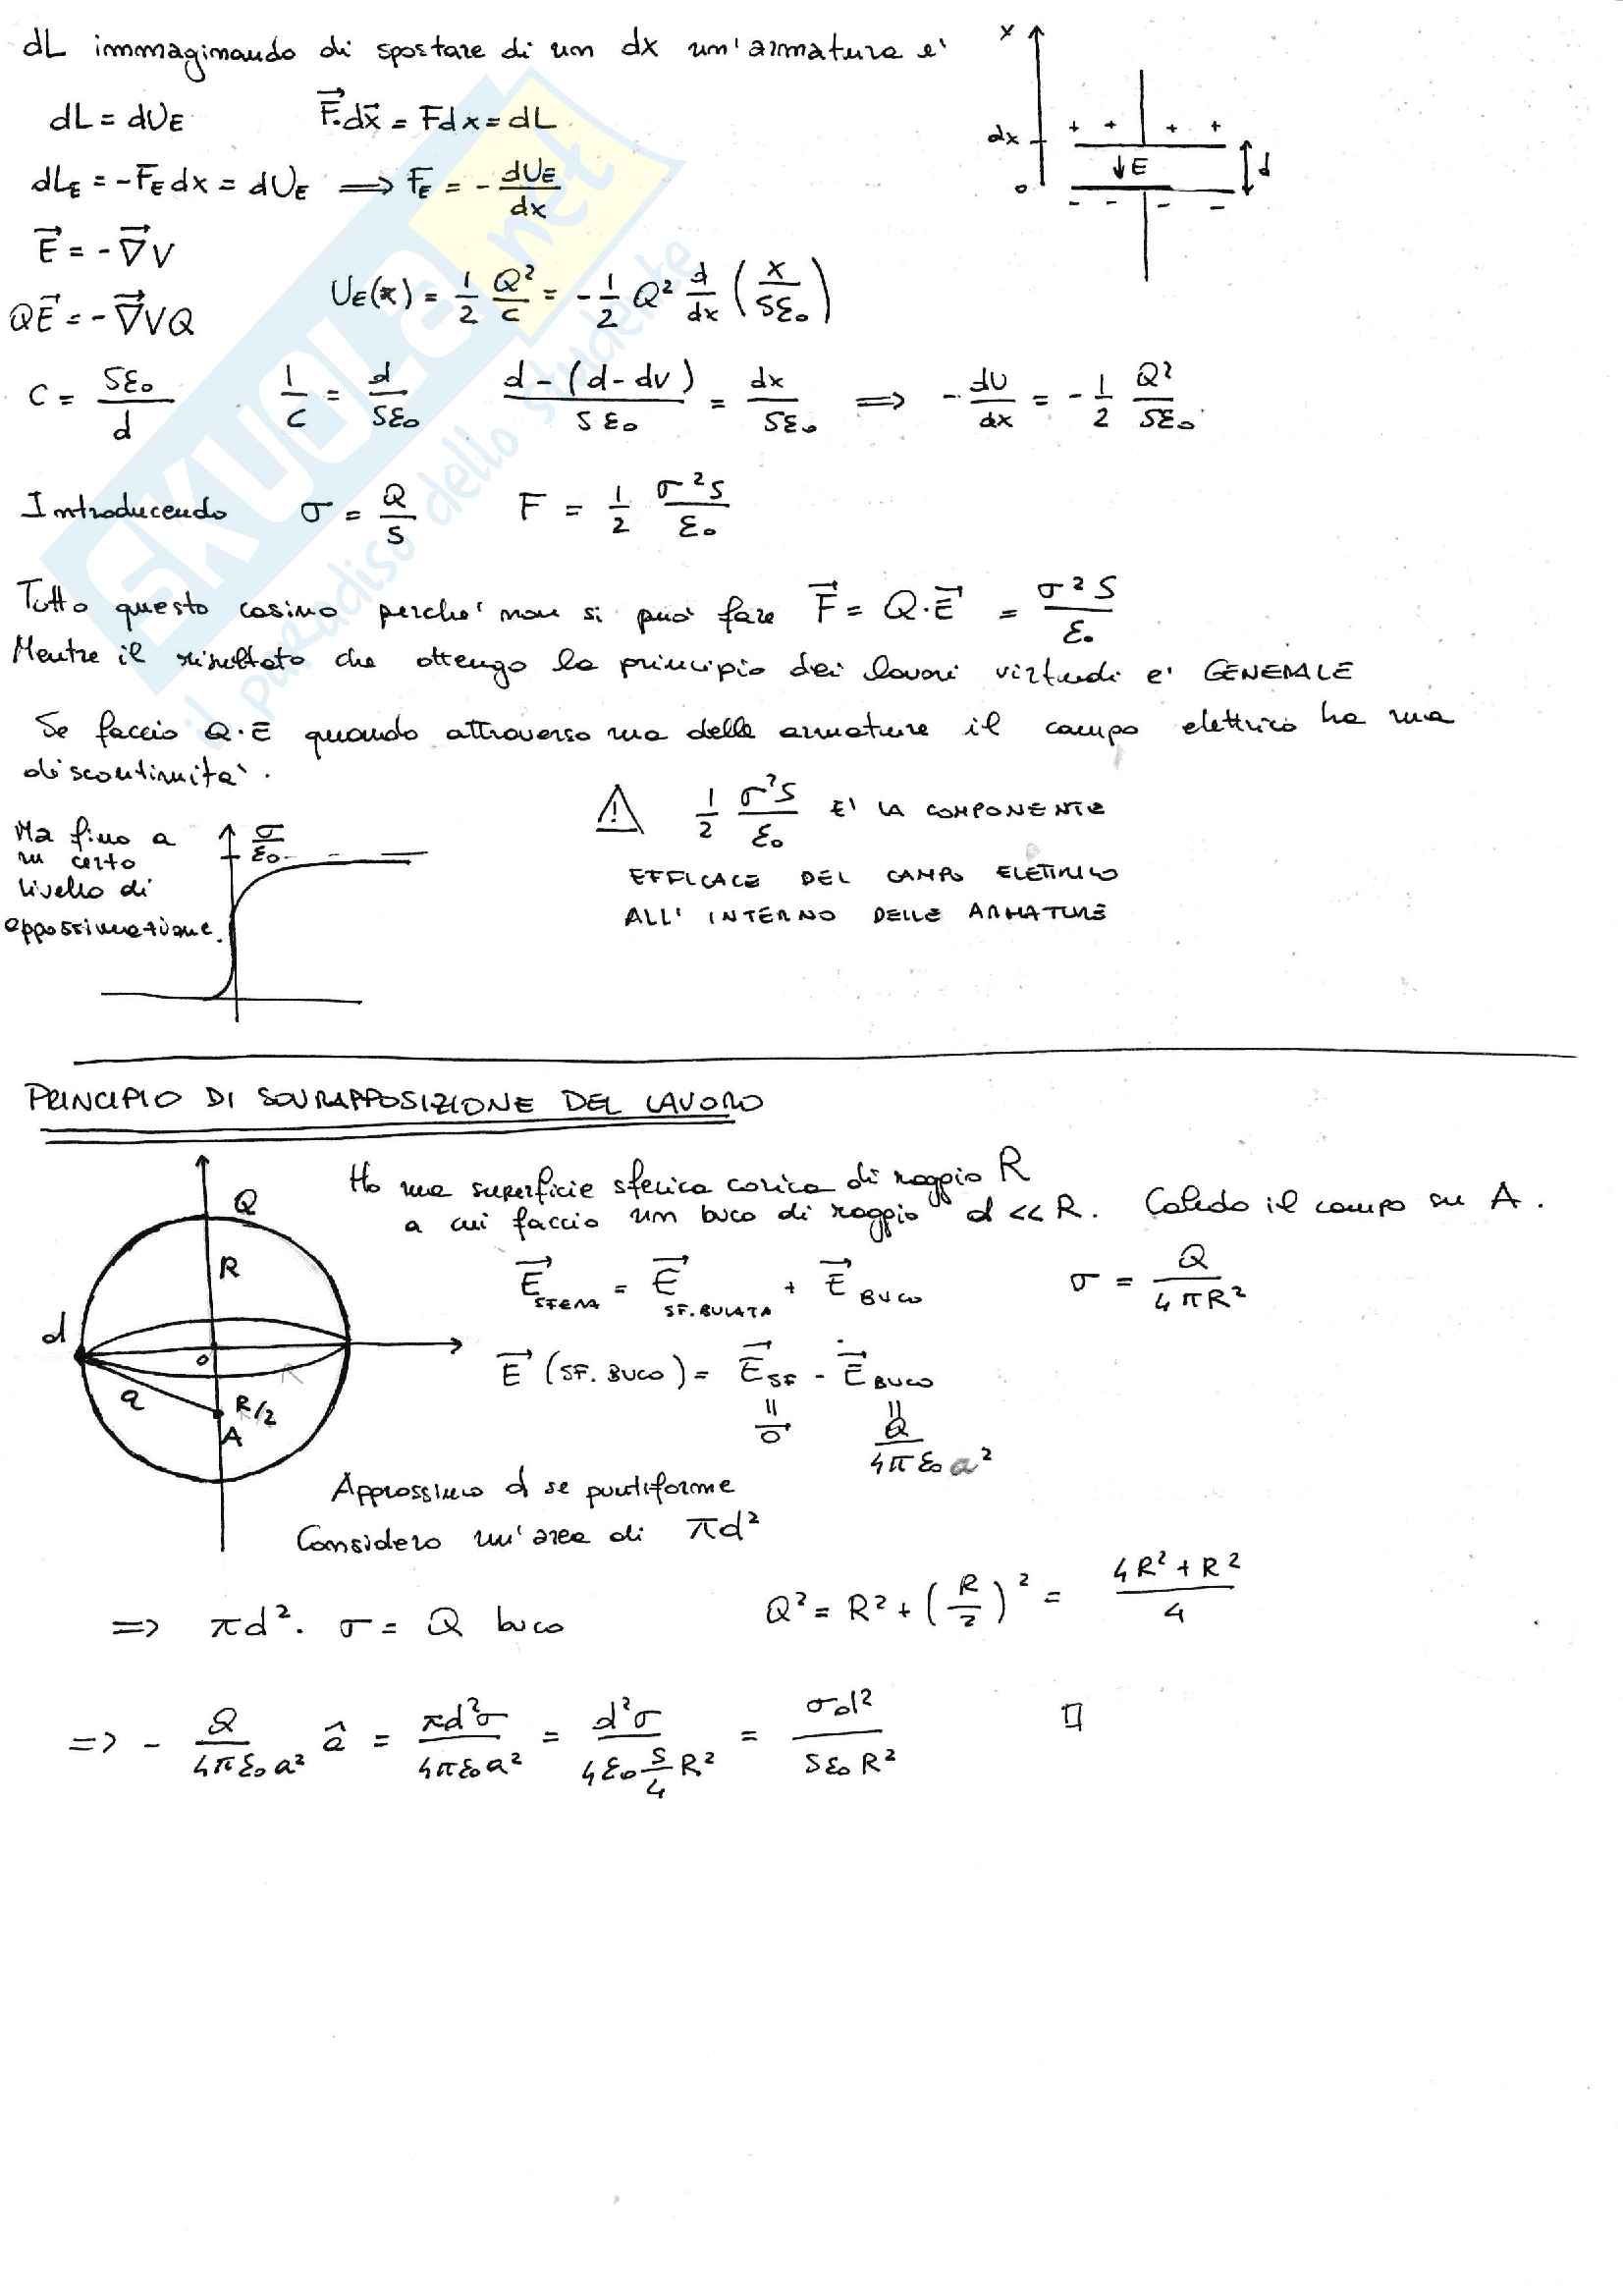 dL immaginando di spostare di un dx un'armatura e'
x
dL = dU_E    F⃗·dx⃗ = Fdx = dL
+ + + +
dx
↓E
d
o
- - - -
dL_E = -F_E dx = dU_E ⟹ F_E = - dU_E/dx
E⃗ = -∇⃗V
U_E(x) = 1/2 Q²/C = -1/2 Q² d/dx (x/Sε₀)
QE⃗ = -∇⃗VQ
C = Sε₀/d    1/C = d/Sε₀    d-(d-dv)/Sε₀ = dx/Sε₀ ⟹ -dU/dx = -1/2 Q²/Sε₀.
Introducendo σ = Q/S    F = 1/2 σ²S/ε₀
Tutto questo casino perche' non si puo' fare F⃗ = Q·E⃗ = σ²S/ε₀
Mentre il risultato che ottengo la principio dei lavori virtuali e' GENERALE
Se faccio Q·E quando attraverso una delle armature il campo elettrico ha una
discontinuita'.
Ma fino a
un certo
livello di
approssimazione.
σ/ε₀
⚠ 1/2 σ²S/ε₀ E' LA COMPONENTE
EFFICACE DEL CAMPO ELETTRICO
ALL' INTERNO DELLE ARMATURE
PRINCIPIO DI SOVRAPPOSIZIONE DEL LAVORO
Ho una superficie sferica carica di raggio R
a cui faccio un buco di raggio d << R. Calcolo il campo su A.
Q
R
d
o
R
a
R/2
A
E⃗ SFERA = E⃗ SF. BUCATA + E⃗ BUCO    σ = Q/4πR²
E⃗ (SF. BUCO) = E⃗ SF - E⃗ BUCO
= 0⃗    = Q/4πε₀a²
Approssimo d se puntiforme
Considero un'area di πd²
=> πd²· σ = Q buco    Q² = R² + (R/2)² = 4R²+R²/4
=> - Q/4πε₀a² â = πd²σ/4πε₀a² = d²σ/4ε₀ 5/4 R² = σd²/5ε₀R²    □
SKUOLA.net
il paradiso dello studente